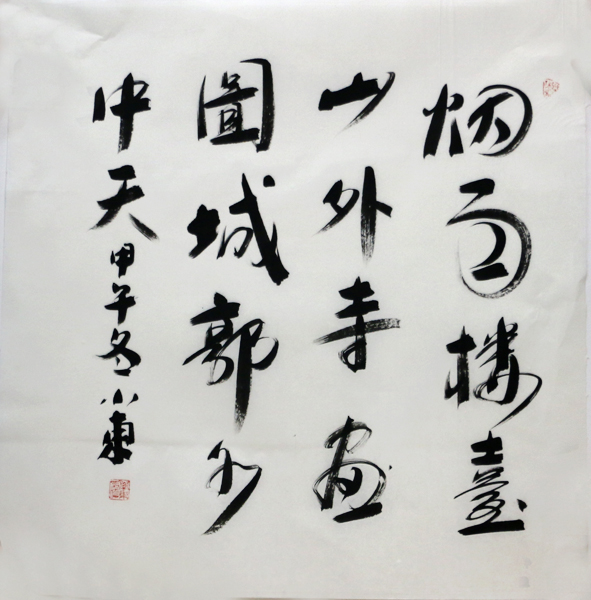 烟雨楼臺
山外寺画
圖城郭水
中天甲午冬小東